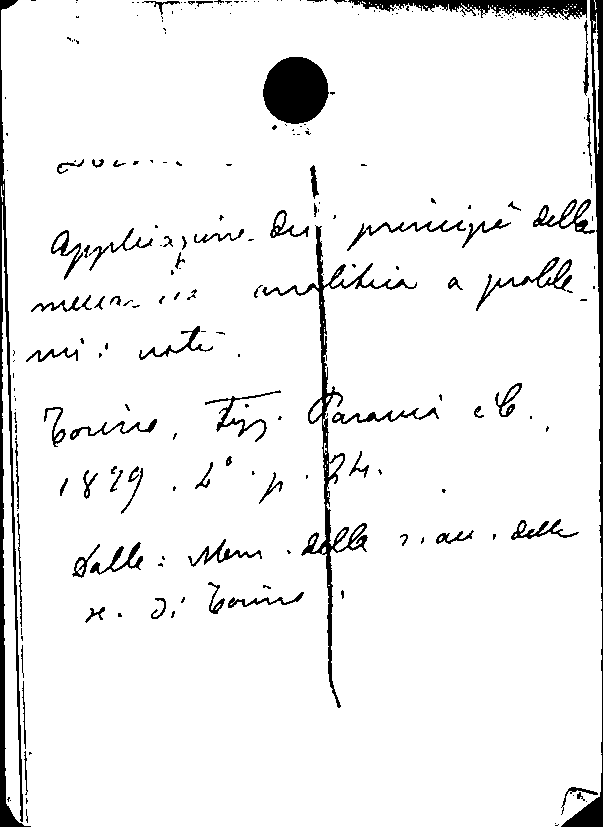 Applicazione dei principi della
meccanica analitica a proble-
mi noti.
Torino, Tip. Paravia e C.,
1879. 4° p. 24.
Dalle: Mem. della r. acc. delle
sc. di Torino.